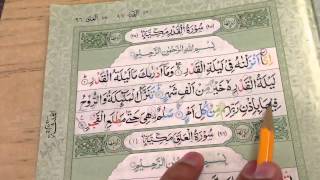 سُورَةُ الْقَدْرِ مَكِّيَّةٌ
بِسْمِ اللَّهِ الرَّحْمَٰنِ الرَّحِيمِ
إِنَّا أَنْزَلْنَٰهُ فِي لَيْلَةِ الْقَدْرِ وَمَا أَدْرَىٰكَ مَا لَيْلَةُ الْقَدْرِ
لَيْلَةُ الْقَدْرِ خَيْرٌ مِنْ أَلْفِ شَهْرٍ تَنَزَّلُ الْمَلَٰئِكَةُ وَالرُّوحُ
فِيهَا بِإِذْنِ رَبِّهِمْ مِنْ كُلِّ أَمْرٍ سَلَٰمٌ هِيَ حَتَّىٰ مَطْلَعِ الْفَجْرِ
سُورَةُ الْعَلَقِ مَكِّيَّةٌ
بِسْمِ اللَّهِ الرَّحْمَٰنِ الرَّحِيمِ